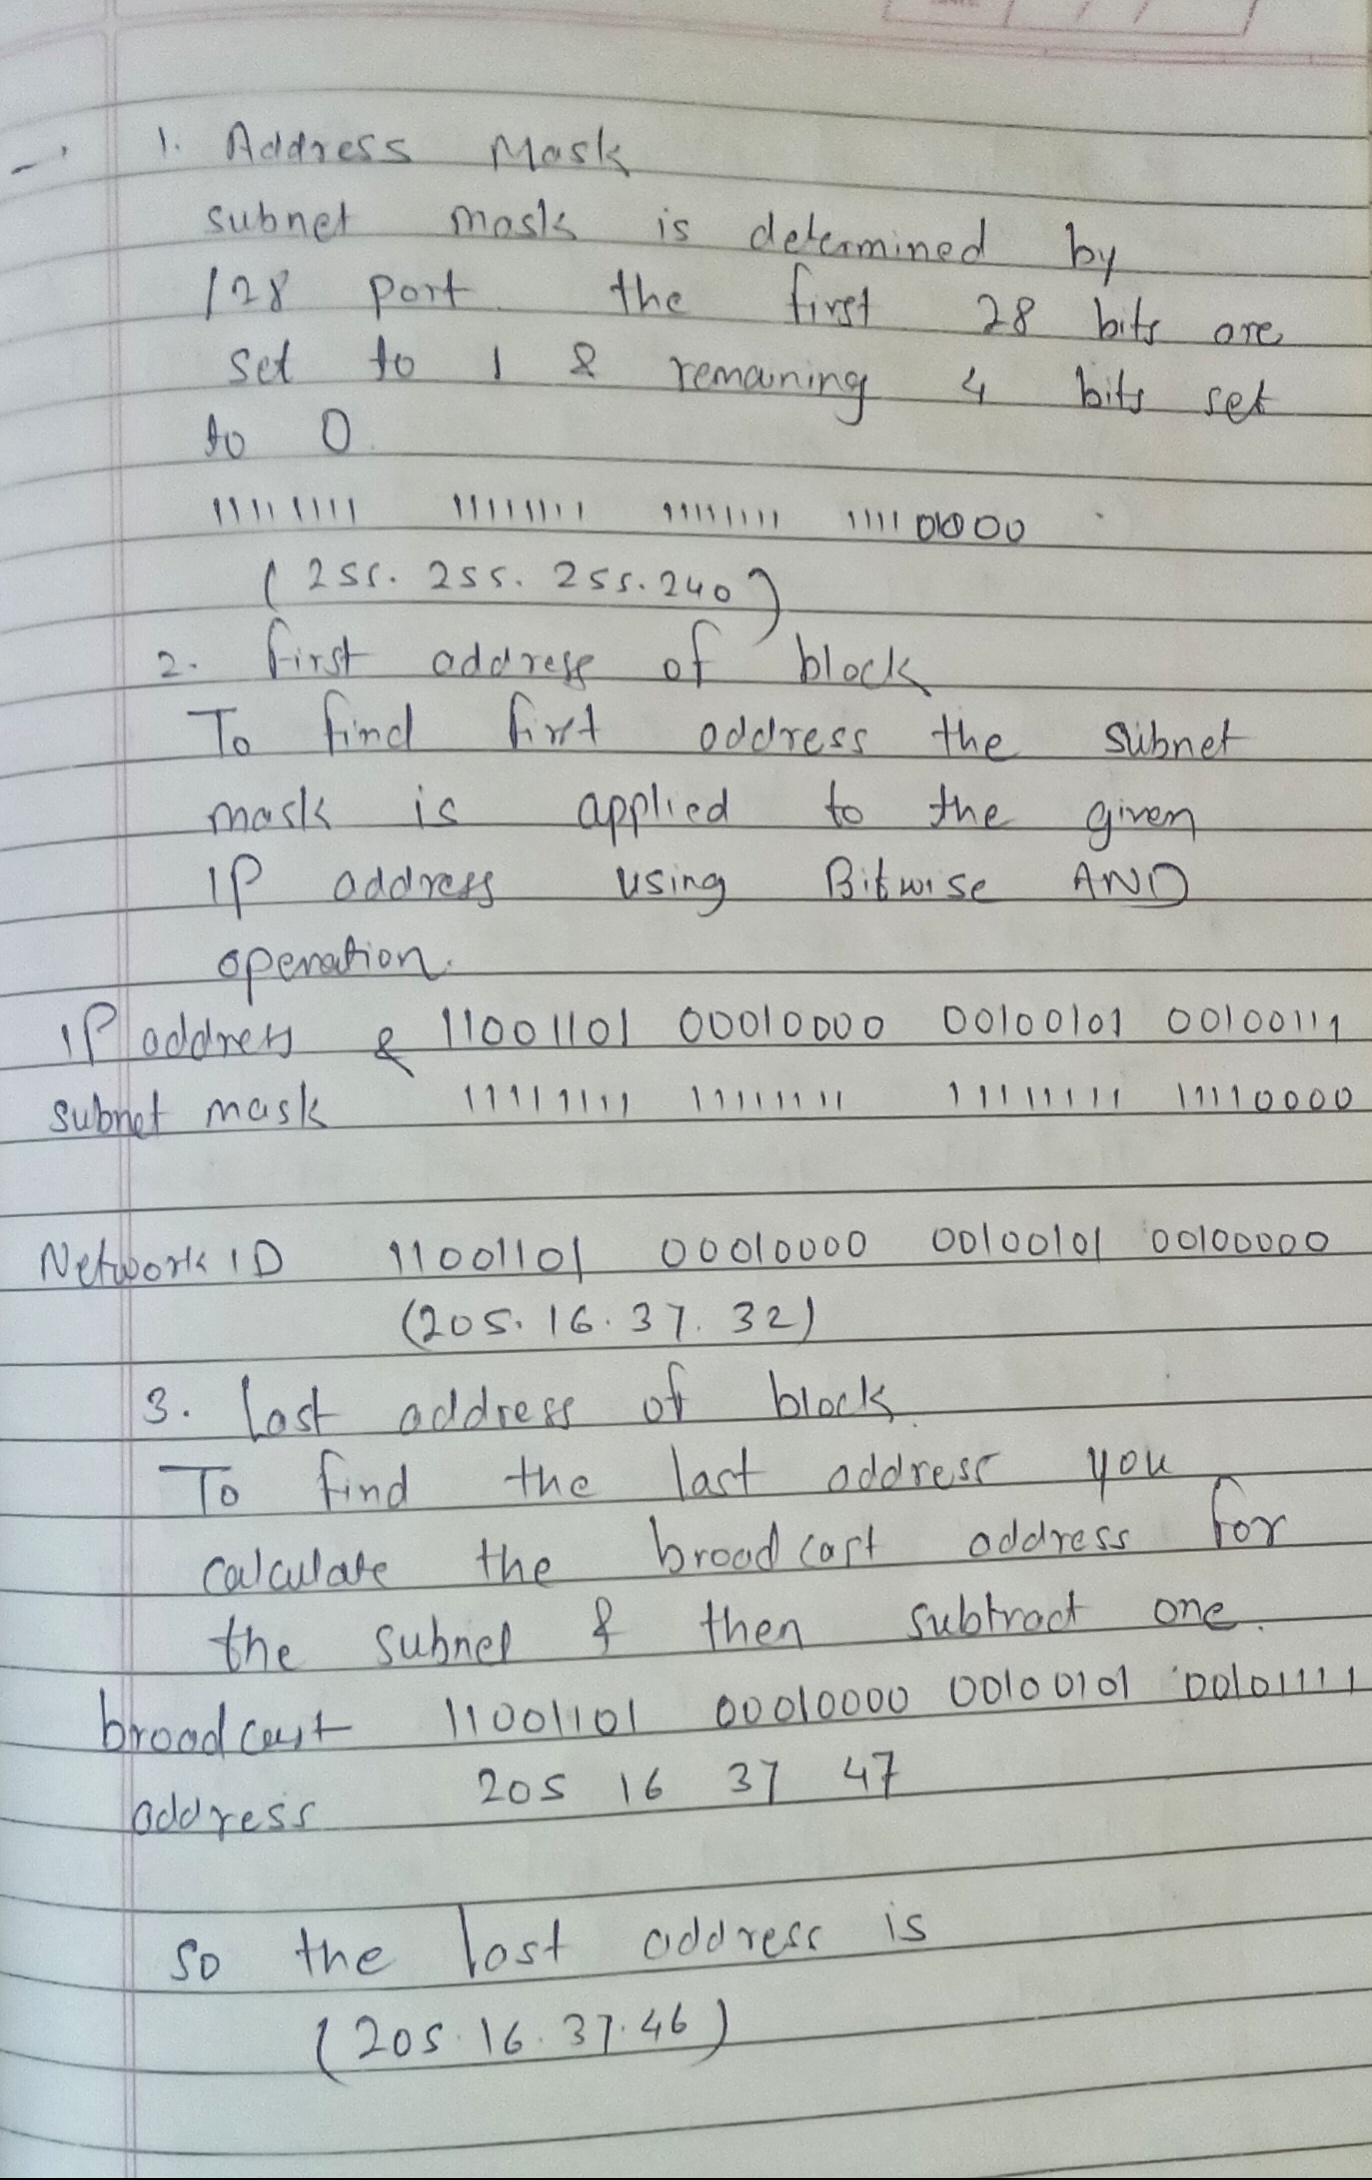 1. Address Mask
subnet mask is determined by
/28 part the first 28 bits are
set to 1 & remaining 4 bits set
to 0
11111111 11111111 11111111 11110000
(255.255.255.240)
2. First address of block
To find first address the subnet
mask is applied to the given
IP address using Bitwise AND
operation.
IP address & 11001101 00010000 00100101 00100111
subnet mask 11111111 11111111 11111111 11110000
Network ID 11001101 00010000 00100101 00100000
(205.16.37.32)
3. Last address of block
To find the last address you
calculate the broadcast address for
the subnet & then subtract one.
broadcast 11001101 00010000 00100101 00101111
address 205 16 37 47
so the last address is
(205.16.37.46)